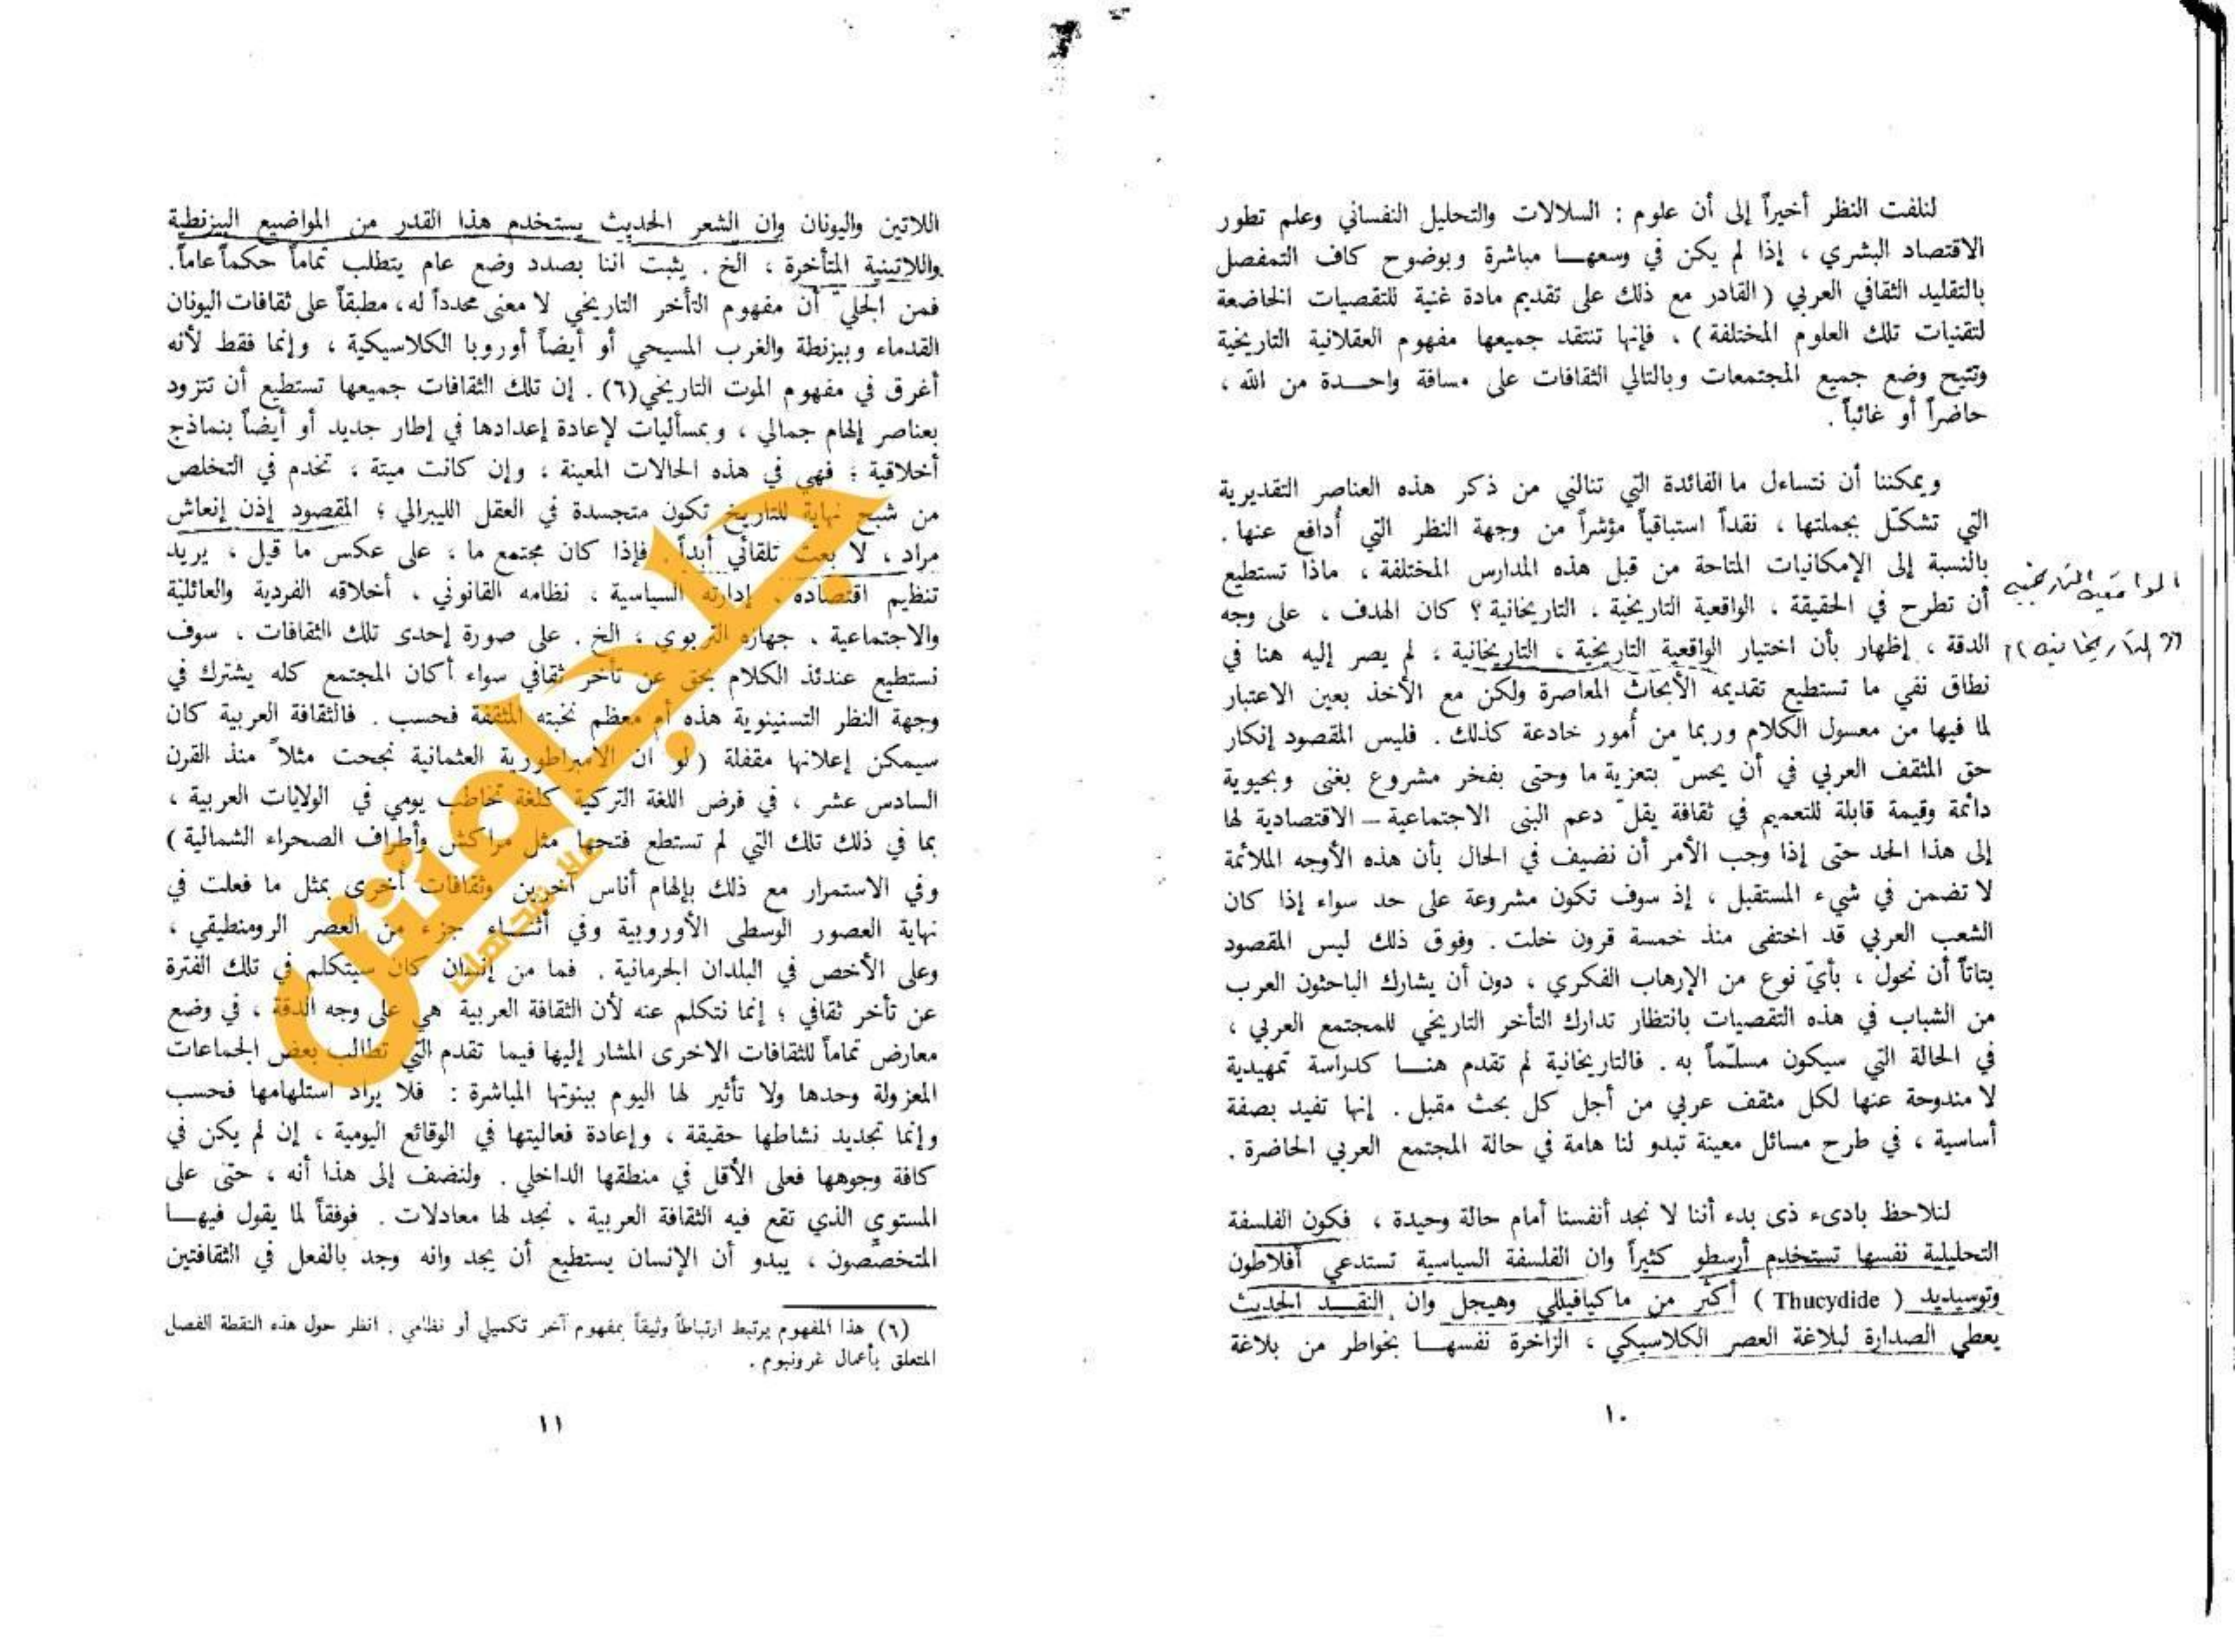 لنلفت النظر أخيراً إلى أن علوم : السلالات والتحليل النفساني وعلم تطور
الاقتصاد البشري ، إذا لم يكن في وسعهــا مباشرة وبوضوح كاف التمفصل
بالتقليد الثقافي العربي ( القادر مع ذلك على تقديم مادة غنية للتقصيات الخاضعة
لتقنيات تلك العلوم المختلفة ) ، فإنها تنتقد جميعها مفهوم العقلانية التاريخية
وتتيح وضع جميع المجتمعات وبالتالي الثقافات على مسافة واحــدة من الله ،
حاضراً أو غائباً .
ويمكننا أن نتساءل ما الفائدة التي تنالني من ذكر هذه العناصر التقديرية
التي تشكّل بجملتها ، نقداً استباقياً مؤثراً من وجهة النظر التي أُدافع عنها .
بالنسبة إلى الإمكانيات المتاحة من قبل هذه المدارس المختلفة ، ماذا تستطيع
أن تطرح في الحقيقة ، الواقعية التاريخية ، التاريخانية ؟ كان الهدف ، على وجه
الواقعية التاريخية
الدقة ، إظهار بأن اختيار الواقعية التاريخية ، التاريخانية ، لم يصر إليه هنا في
((التاريخانية))
نطاق نفي ما تستطيع تقديمه الأبحاث المعاصرة ولكن مع الأخذ بعين الاعتبار
لما فيها من معسول الكلام وربما من أمور خادعة كذلك . فليس المقصود إنكار
حق المثقف العربي في أن يحسّ بتعزية ما وحتى بفخر مشروع بغنى وبحيوية
دائمة وقيمة قابلة للتعميم في ثقافة يقلّ دعم البنى الاجتماعية – الاقتصادية لها
إلى هذا الحد حتى إذا وجب الأمر أن نضيف في الحال بأن هذه الأوجه الملائمة
لا تضمن في شيء المستقبل ، إذ سوف تكون مشروعة على حد سواء إذا كان
الشعب العربي قد اختفى منذ خمسة قرون خلت . وفوق ذلك ليس المقصود
بتاتاً أن نحول ، بأيّ نوع من الإرهاب الفكري ، دون أن يشارك الباحثون العرب
من الشباب في هذه التقصيات بانتظار تدارك التأخر التاريخي للمجتمع العربي ،
في الحالة التي سيكون مسلّماً به . فالتاريخانية لم تقدم هنــا كدراسة تمهيدية
لا مندوحة عنها لكل مثقف عربي من أجل كل بحث مقبل . إنها تفيد بصفة
أساسية ، في طرح مسائل معينة تبدو لنا هامة في حالة المجتمع العربي الحاضرة .
لنلاحظ بادىء ذى بدء أننا لا نجد أنفسنا أمام حالة وحيدة ، فكون الفلسفة
التحليلية نفسها تستخدم أرسطو كثيراً وان الفلسفة السياسية تستدعي أفلاطون
وتوسيديد ( Thucydide ) أكثر من ماكيافيللي وهيجل وان النقــد الحديث
يعطي الصدارة لبلاغة العصر الكلاسيكي ، الزاخرة نفسهــا بخواطر من بلاغة
١٠
اللاتين واليونان وان الشعر الحديث يستخدم هذا القدر من المواضيع البيزنطية
واللاتينية المتأخرة ، الخ . يثبت اننا بصدد وضع عام يتطلب تماماً حكماً عاماً .
فمن الجليّ أن مفهوم التأخر التاريخي لا معنى محدداً له ، مطبقاً على ثقافات اليونان
القدماء وبيزنطة والغرب المسيحي أو أيضاً أوروبا الكلاسيكية ، وإنما فقط لأنه
أغرق في مفهوم الموت التاريخي(٦) . إن تلك الثقافات جميعها تستطيع أن تتزود
بعناصر إلهام جمالي ، وبمسأليات لإعادة إعدادها في إطار جديد أو أيضاً بنماذج
أخلاقية ؛ فهي في هذه الحالات المعينة ، وإن كانت ميتة ، تخدم في التخلص
من شبح نهاية للتاريخ تكون متجسدة في العقل الليبرالي ؛ المقصود إذن إنعاش
مراد ، لا بعث تلقائي أبداً . فإذا كان مجتمع ما ، على عكس ما قيل ، يريد
تنظيم اقتصاده ، إدارته السياسية ، نظامه القانوني ، أخلاقه الفردية والعائلية
والاجتماعية ، جهازه التربوي ، الخ . على صورة إحدى تلك الثقافات ، سوف
نستطيع عندئذ الكلام بحق عن تأخر ثقافي سواء أكان المجتمع كله يشترك في
وجهة النظر التسنينوية هذه أم معظم نخبته المثقفة فحسب . فالثقافة العربية كان
سيمكن إعلانها مقفلة ( لو ان الامبراطورية العثمانية نجحت مثلاً منذ القرن
السادس عشر ، في فرض اللغة التركية كلغة تخاطب يومي في الولايات العربية ،
بما في ذلك تلك التي لم تستطع فتحها مثل مراكش وأطراف الصحراء الشمالية )
وفي الاستمرار مع ذلك بإلهام أناس آخرين وثقافات أخرى بمثل ما فعلت في
نهاية العصور الوسطى الأوروبية وفي أثنــاء جزء من العصر الرومنطيقي ،
وعلى الأخص في البلدان الجرمانية . فما من إنسان كان سيتكلم في تلك الفترة
عن تأخر ثقافي ؛ إنما نتكلم عنه لأن الثقافة العربية هي على وجه الدقة ، في وضع
معارض تماماً للثقافات الاخرى المشار إليها فيما تقدم التي تطالب بعض الجماعات
المعزولة وحدها ولا تأثير لها اليوم ببنوتها المباشرة : فلا يراد استلهامها فحسب
وإنما تجديد نشاطها حقيقة ، وإعادة فعاليتها في الوقائع اليومية ، إن لم يكن في
كافة وجوهها فعلى الأقل في منطقها الداخلي . ولنضف إلى هذا أنه ، حتى على
المستوي الذي تقع فيه الثقافة العربية ، نجد لها معادلات . فوفقاً لما يقول فيهــا
المتخصّصون ، يبدو أن الإنسان يستطيع أن يجد وانه وجد بالفعل في الثقافتين
(٦) هذا المفهوم يرتبط ارتباطاً وثيقاً بمفهوم آخر تكميلي أو نظامي . انظر حول هذه النقطة الفصل
المتعلق بأعمال غرونبوم .
١١